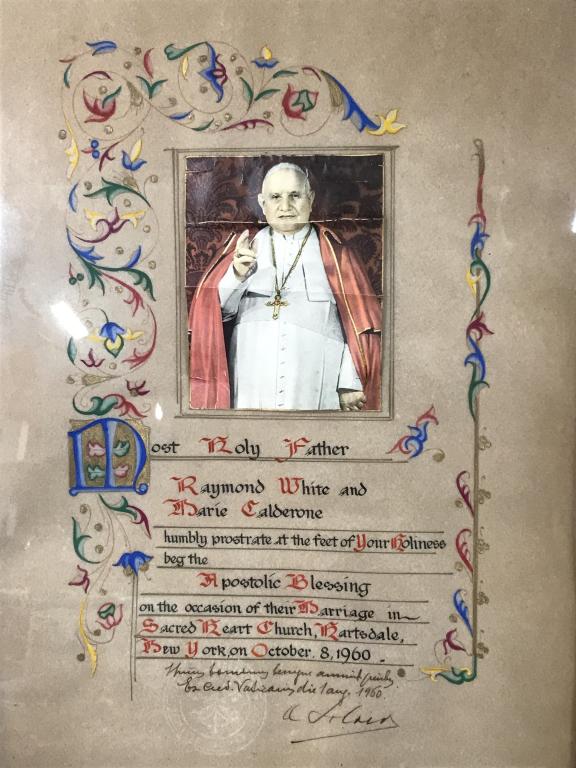 Most Holy Father
Raymond White and
Marie Calderone
humbly prostrate at the feet of Your Holiness
beg the
Apostolic Blessing
on the occasion of their Marriage in
Sacred Heart Church, Hartsdale,
New York, on October. 8, 1960
benigne annuit
Ex Aed. Vaticanis die 1 aug. 1960.